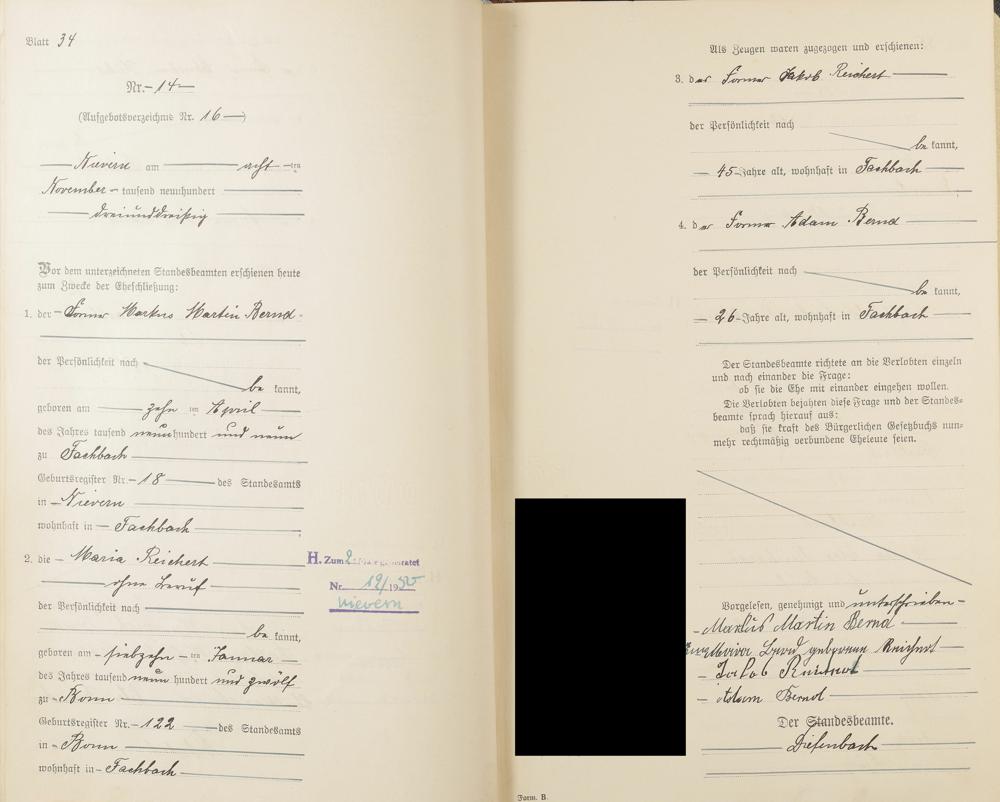 Blatt 34
Nr. 14
(Aufgebotsverzeichnis Nr. 16)
Nievern am acht ten
November tausend neunhundert
dreiunddreißig
Vor dem unterzeichneten Standesbeamten erschienen heute
zum Zwecke der Eheschließung:
1. der Former Markus Martin Bernd
der Persönlichkeit nach
be kannt,
geboren am zehn ten April
des Jahres tausend neunhundert und neun
zu Fachbach
Geburtsregister Nr. 18 des Standesamts
in Nievern
wohnhaft in Fachbach
2. die Maria Reichert
ohne Beruf
der Persönlichkeit nach
be kannt,
geboren am siebzehn ten Januar
des Jahres tausend neun hundert und zwölf
zu Bonn
Geburtsregister Nr. 122 des Standesamts
in Bonn
wohnhaft in Fachbach
H. Zum 2.
Nr. 12/1950
Nievern
Als Zeugen waren zugezogen und erschienen:
3. der Former Jakob Reichert
der Persönlichkeit nach
be kannt,
45 Jahre alt, wohnhaft in Fachbach
4. der Former Adam Bernd
der Persönlichkeit nach
be kannt,
26 Jahre alt, wohnhaft in Fachbach
Der Standesbeamte richtete an die Verlobten einzeln
und nach einander die Frage:
ob sie die Ehe mit einander eingehen wollen.
Die Verlobten bejahten diese Frage und der Standes-
beamte sprach hierauf aus:
daß sie kraft des Bürgerlichen Gesetzbuchs nun-
mehr rechtmäßig verbundene Eheleute seien.
Vorgelesen, genehmigt und unterschrieben
Markus Martin Bernd
Maria Bernd geborene Reichert
Jakob Reichert
Adam Bernd
Der Standesbeamte.
Diefenbach
Form. B.